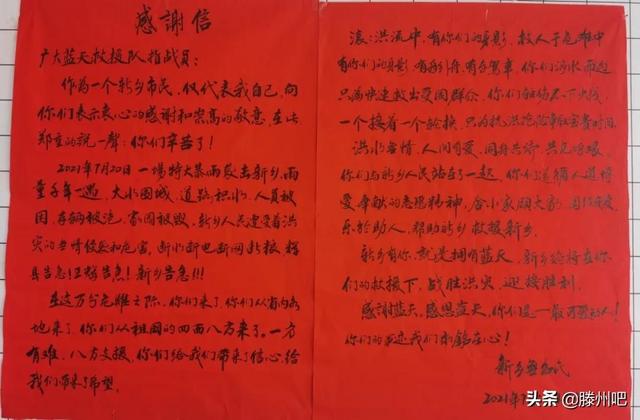 感謝信
广大蓝天救援队指战员：
作为一个新乡市民，仅代表我自己，向
你们表示衷心的感谢和崇高的敬意，在此
郑重的说一声：你们辛苦了！
2021年7月20日一場特大暴雨袭击新乡，雨
量千年一遇，大水围城，道路积水，人员被
困，车辆被淹，家园被毁，新乡人民遭受着洪
灾的无情侵袭和危害，断水断电断网断粮，辉
县告急！卫辉告急！新乡告急！！！
在这万分危难之际，你们来了，你们从省内各
地来了，你们从祖国的四面八方来了。一方
有难，八方支援，你们给我们带来了信心，给
我们带来了希望。
滚滚洪流中，有你们的身影，救人于危难中
有你们的身影，有，你们涉水而过
只为快速救出受困群众，你们轻伤不下火线，
一个接着一个轮换，只为抗洪抢险争取宝贵时间。
洪水无情，人间有爱，同舟共济，共克时艰，
你们与新乡人民站在了一起，你们
爱奉献的志愿精神，舍小家顾大家，
乐於助人，帮助新乡救援新乡。
新乡有你，就是拥有蓝天，新乡必将在你
们的救援下，战胜洪灾，迎接胜利。
感謝蓝天，感恩蓝天，你们是一最可爱的人！
你们的我们永銘在心！
新乡市民
2021年
头条 @滕州吧